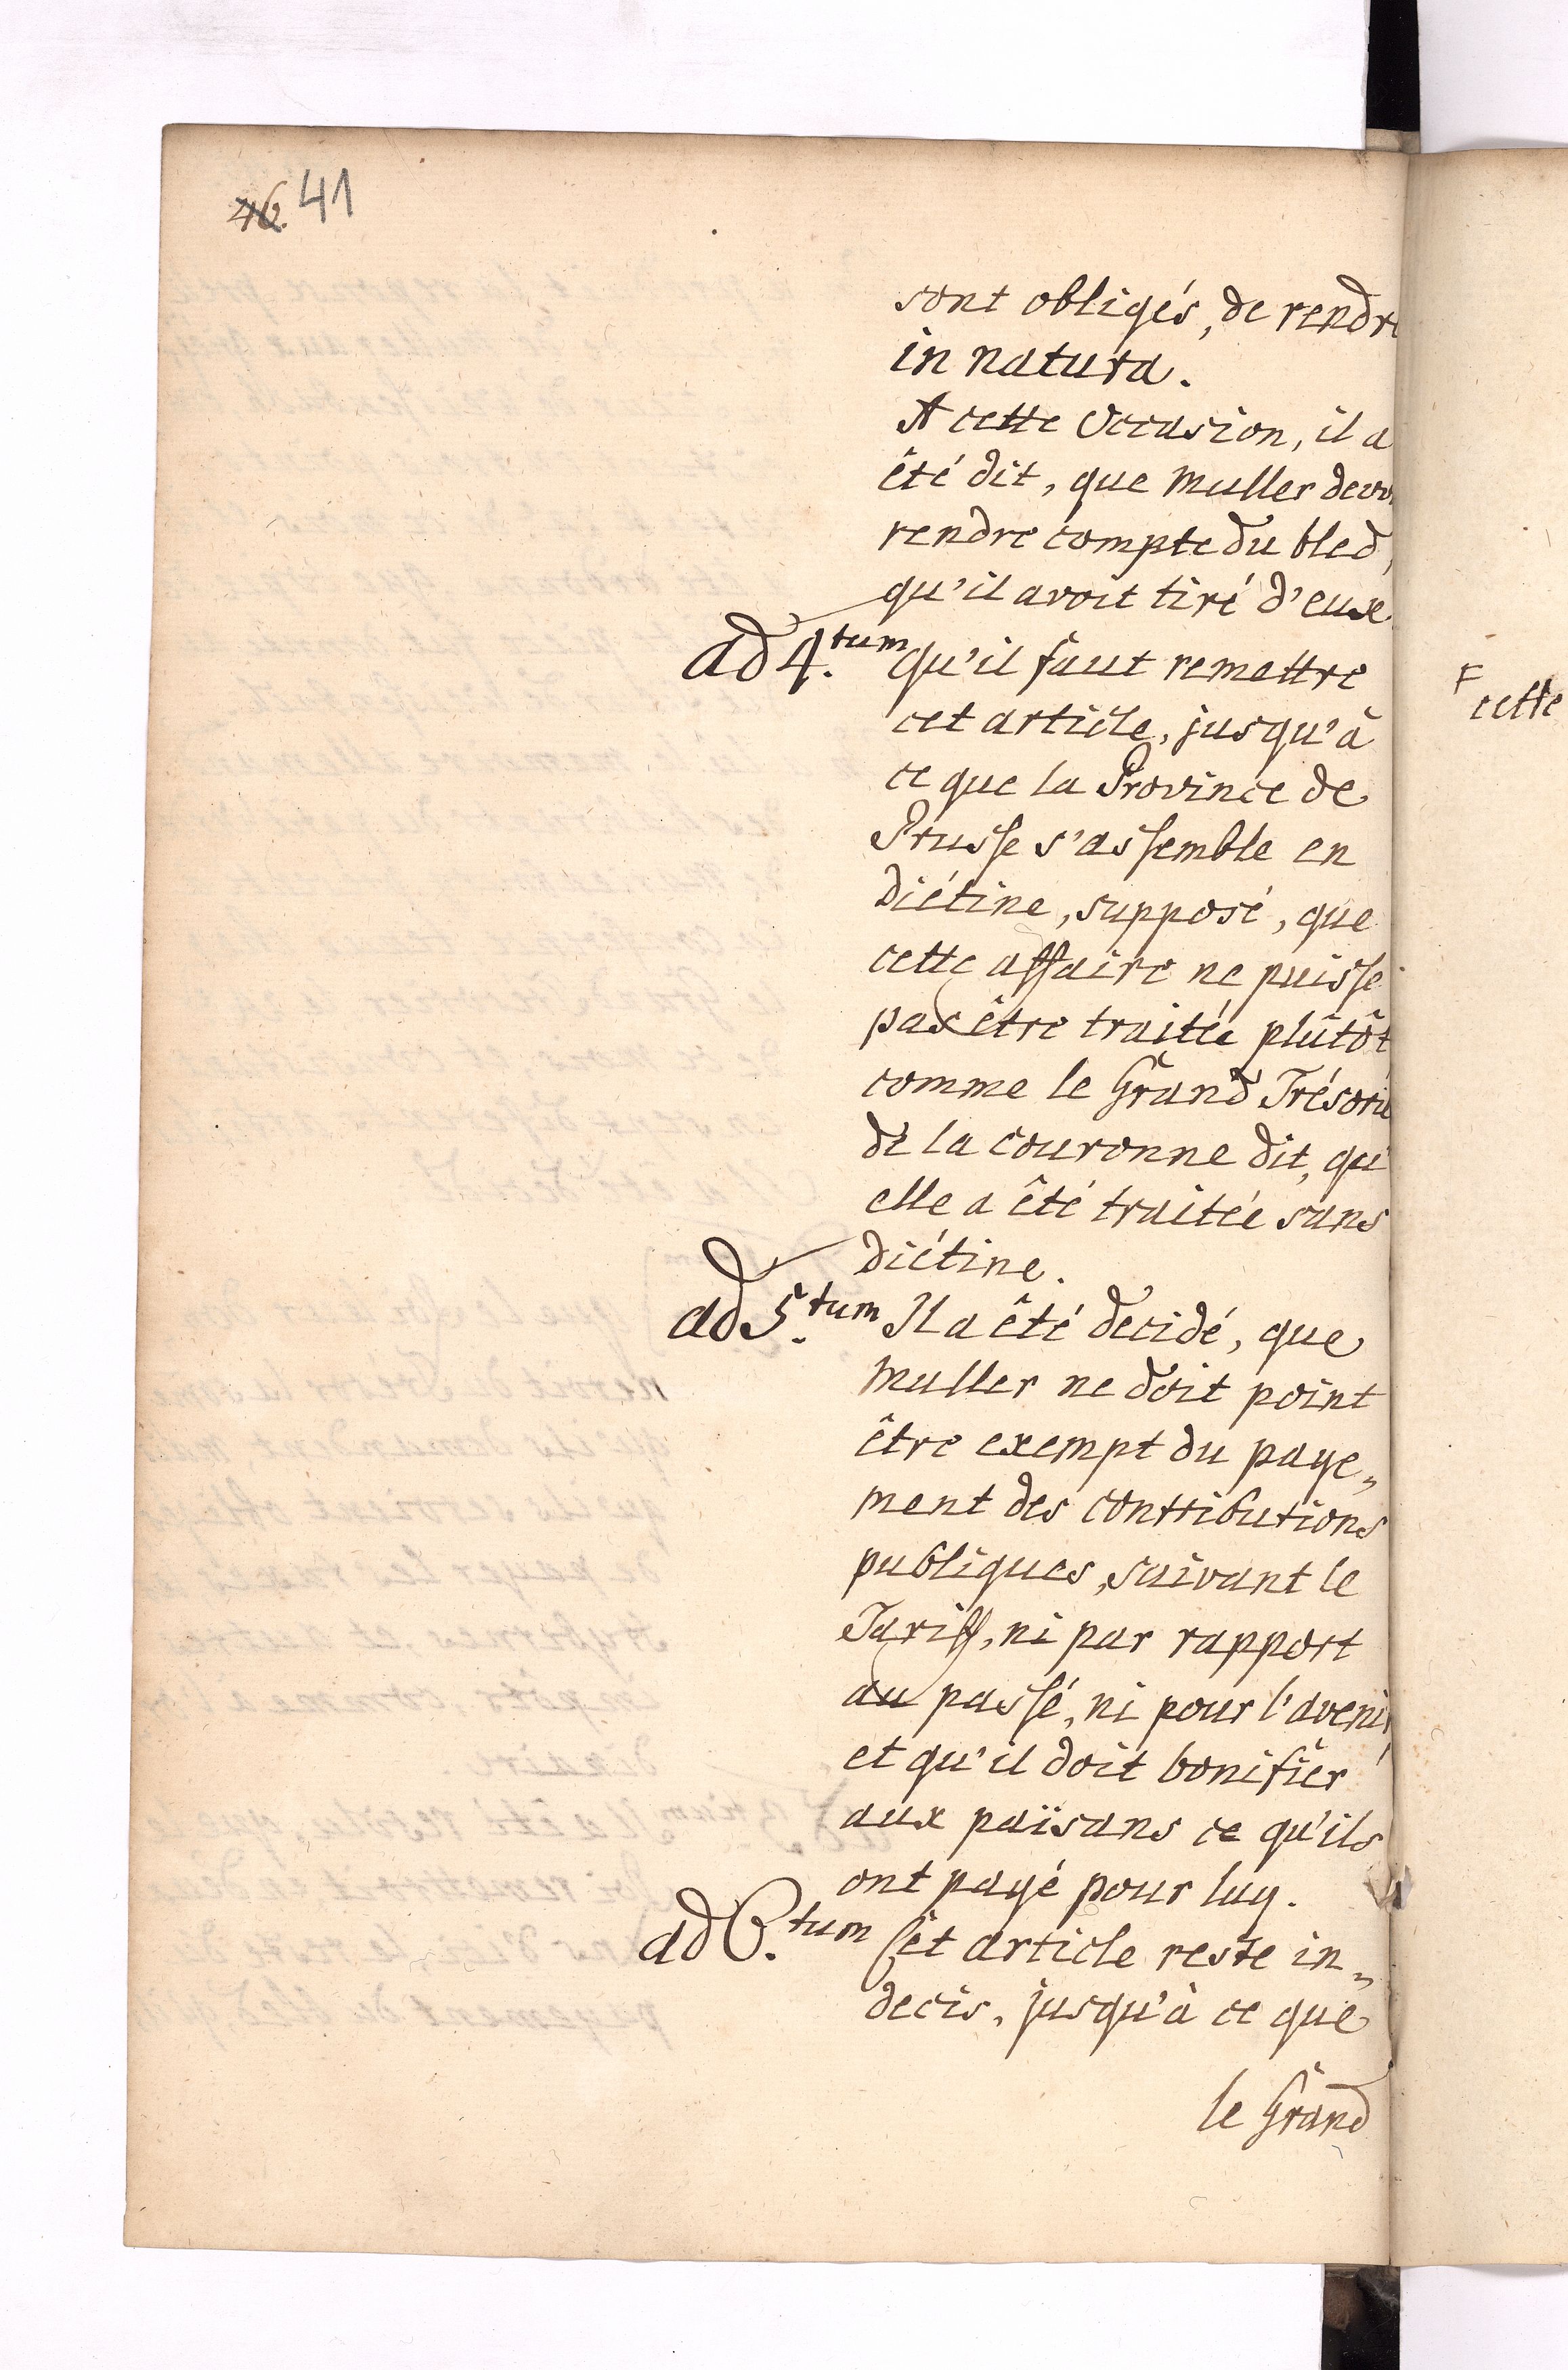 41
sont obligés, de rendre
in natura.
A cette Occasion, il a
êté dit, que Muller
rendre compte du bled,
qu'il avoit tiré d'eux
ad 4.tum qu'il faut remettre
cet article, jusqu'à
ce que la Province de
Prusse s'assemble en
diétine, supposé, que
cette affaire ne puisse
pas être traitée plûtôt
comme le Grand Trésorie
de la couronne dit, qu'
elle a êté traitée sans
diétine.
ad 5.tum Il a êté decidé, que
Muller ne doit point
être exempt du paye„
ment des contributions
publiques, suivant le
Tariff, ni par rapport
au passé, ni pour l'avenir
et qu'il doit bonifier
aux païsans ce qu'ils
ont payé pour luy.
ad 6.tum Cet article reste in„
decis, jusqu'à ce que
le Grand
F
cette